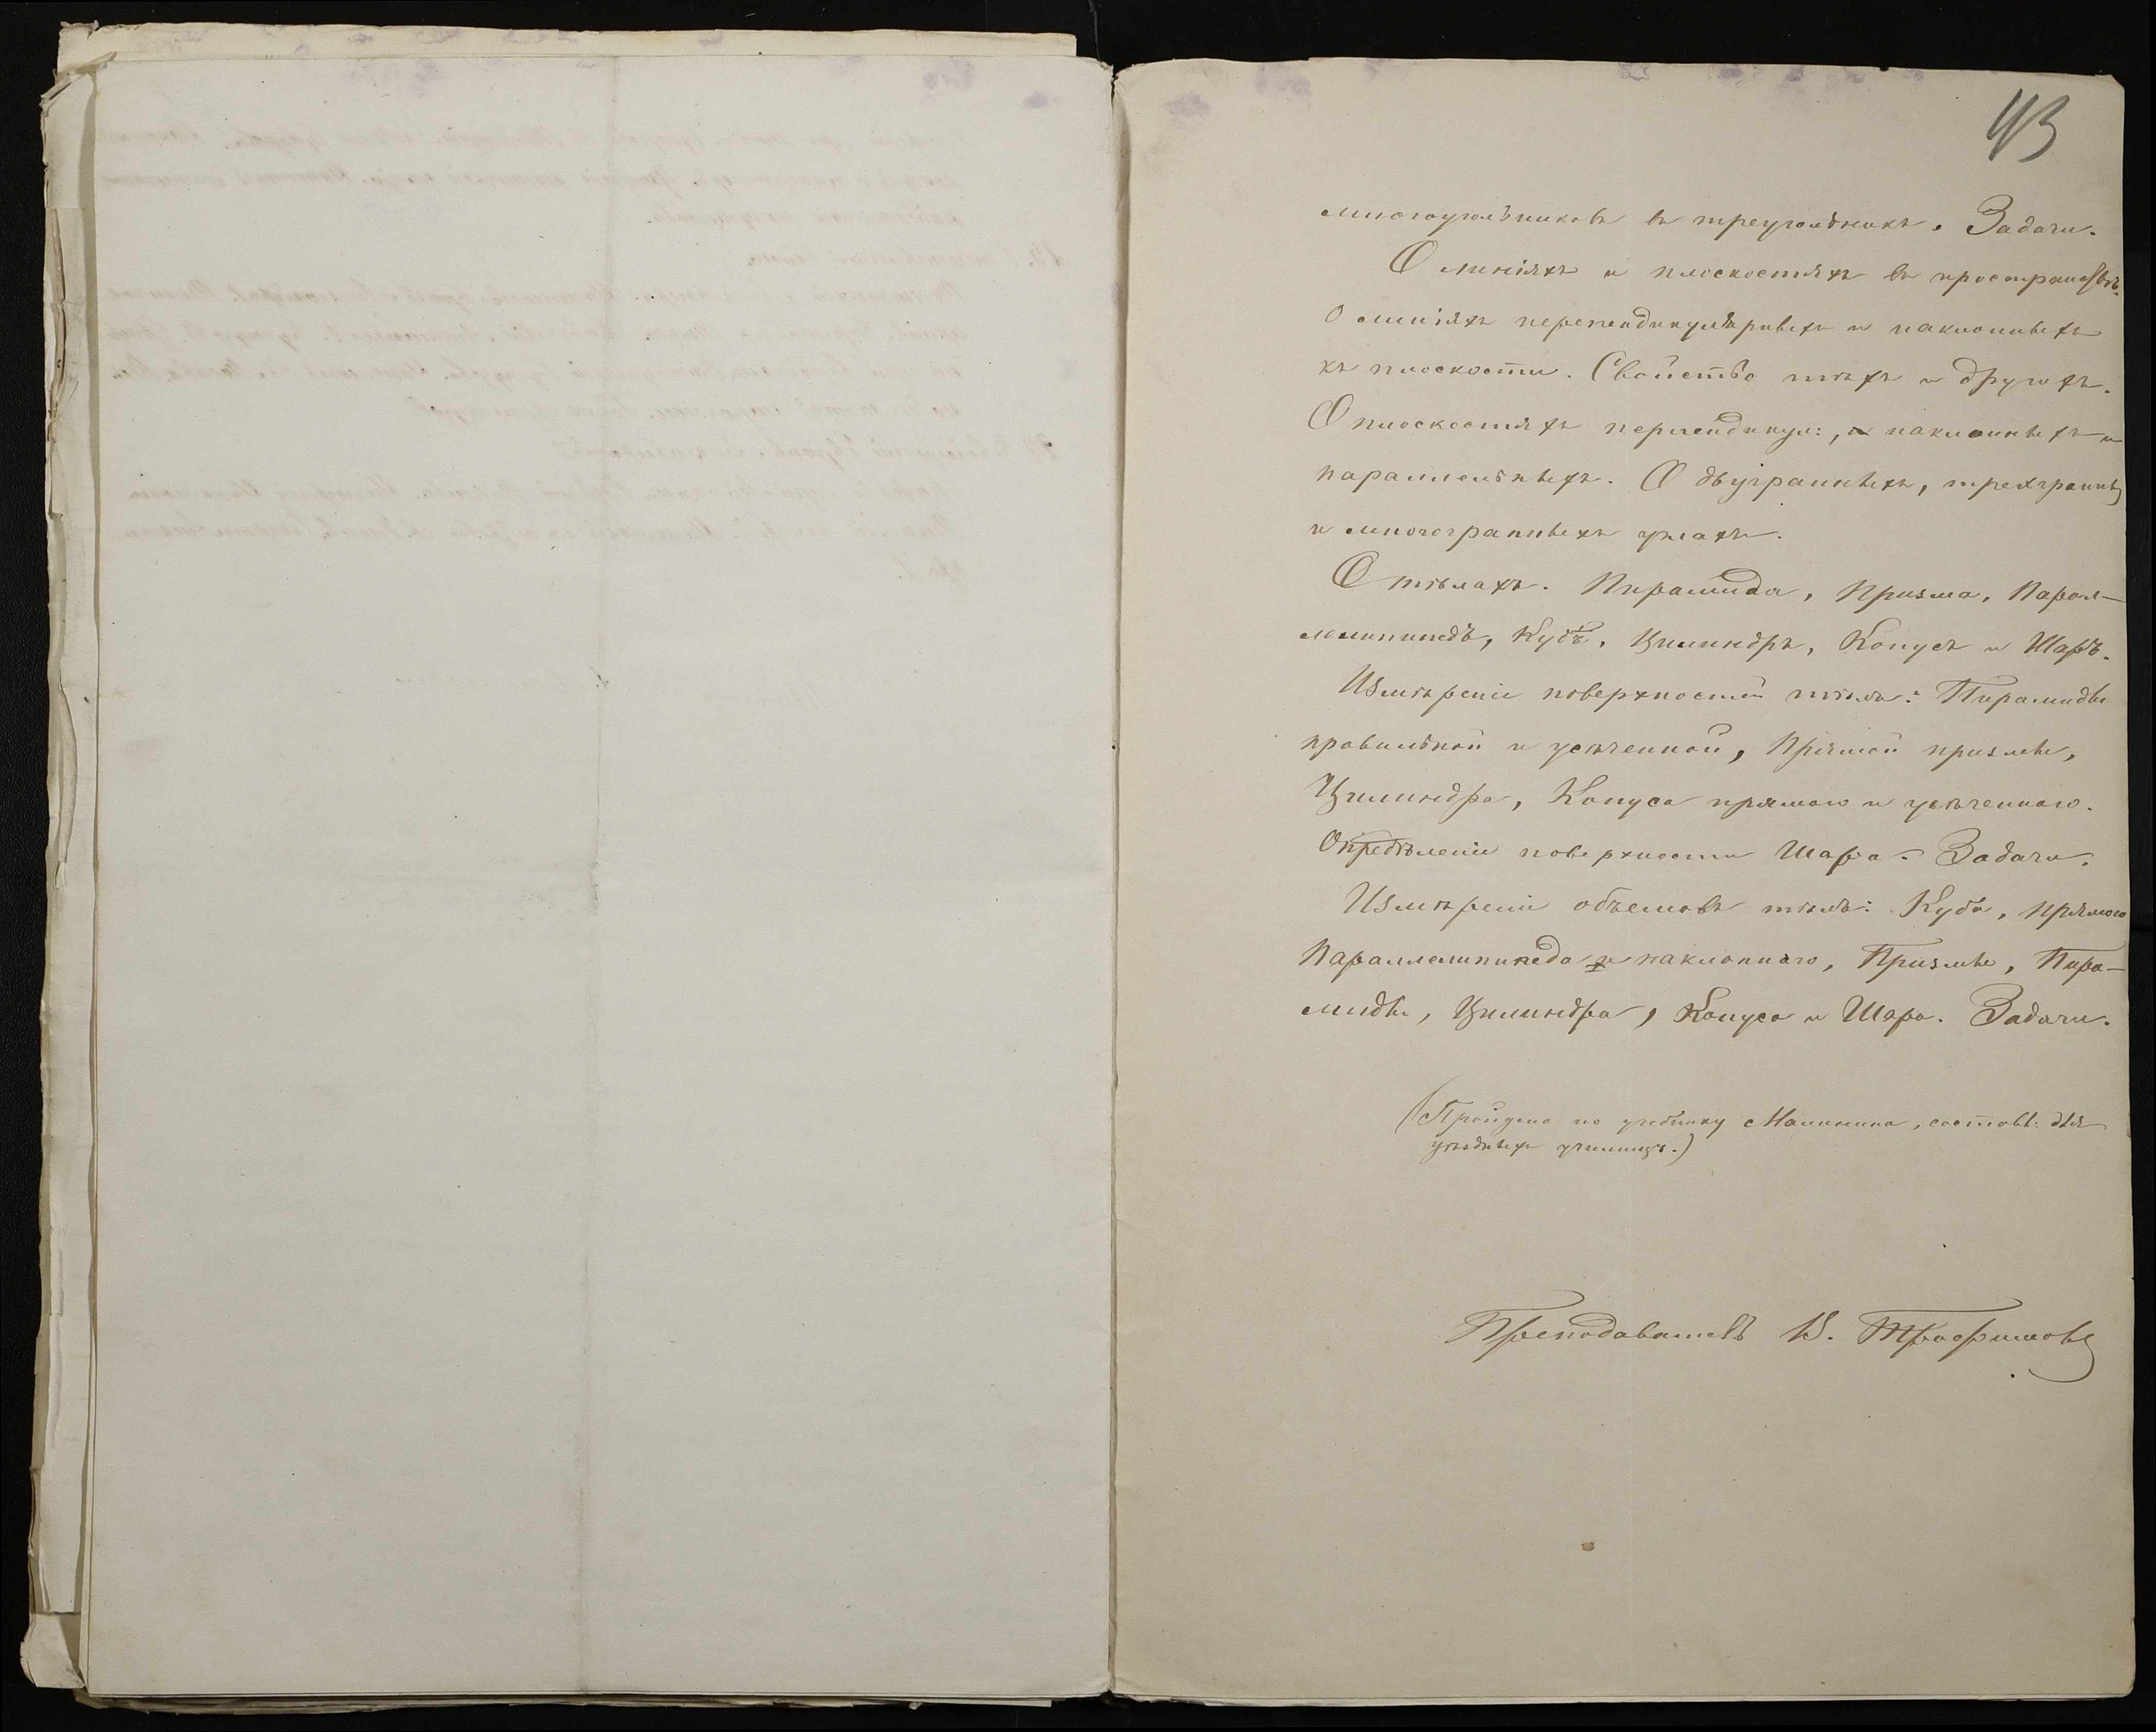 43
многоугольниковъ въ треугольникъ. Задачи.
О линіяхъ и плоскостяхъ въ пространствѣ.
О линіяхъ перпендикулярныхъ и наклонныхъ
къ плоскости. Свойство тѣхъ и другихъ.
О плоскостяхъ перпендикул:, наклонныхъ и
параллельныхъ. О двугранныхъ, трехгранныхъ
и многогранныхъ углахъ.
О тѣлахъ. Пирамида, Призма, Парал-
лелипипедъ, Кубъ, Цилиндръ, Конусъ и Шаръ.
Измѣреніе поверхностей тѣлъ: Пирамиды
правильной и усѣченной, Прямой призмы,
Цилиндра, Конуса прямаго и усѣченнаго.
Опредѣленіе поверхности Шара. Задачи.
Измѣреніе объемовъ тѣлъ: Куба, прямого
Параллелипипеда и наклоннаго, Призмы, Пира-
миды, Цилиндра, Конуса и Шара. Задачи.
(Пройдено по учебнику Малинина, составл: для
уѣздныхъ училищъ.)
Преподаватель В. Трофимовъ